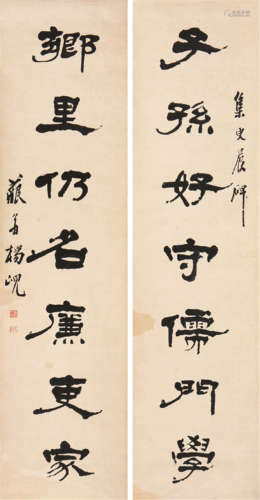 子孫好守儒門學
集史晨碑
鄉里仍名廉吏家
藐翁楊峴